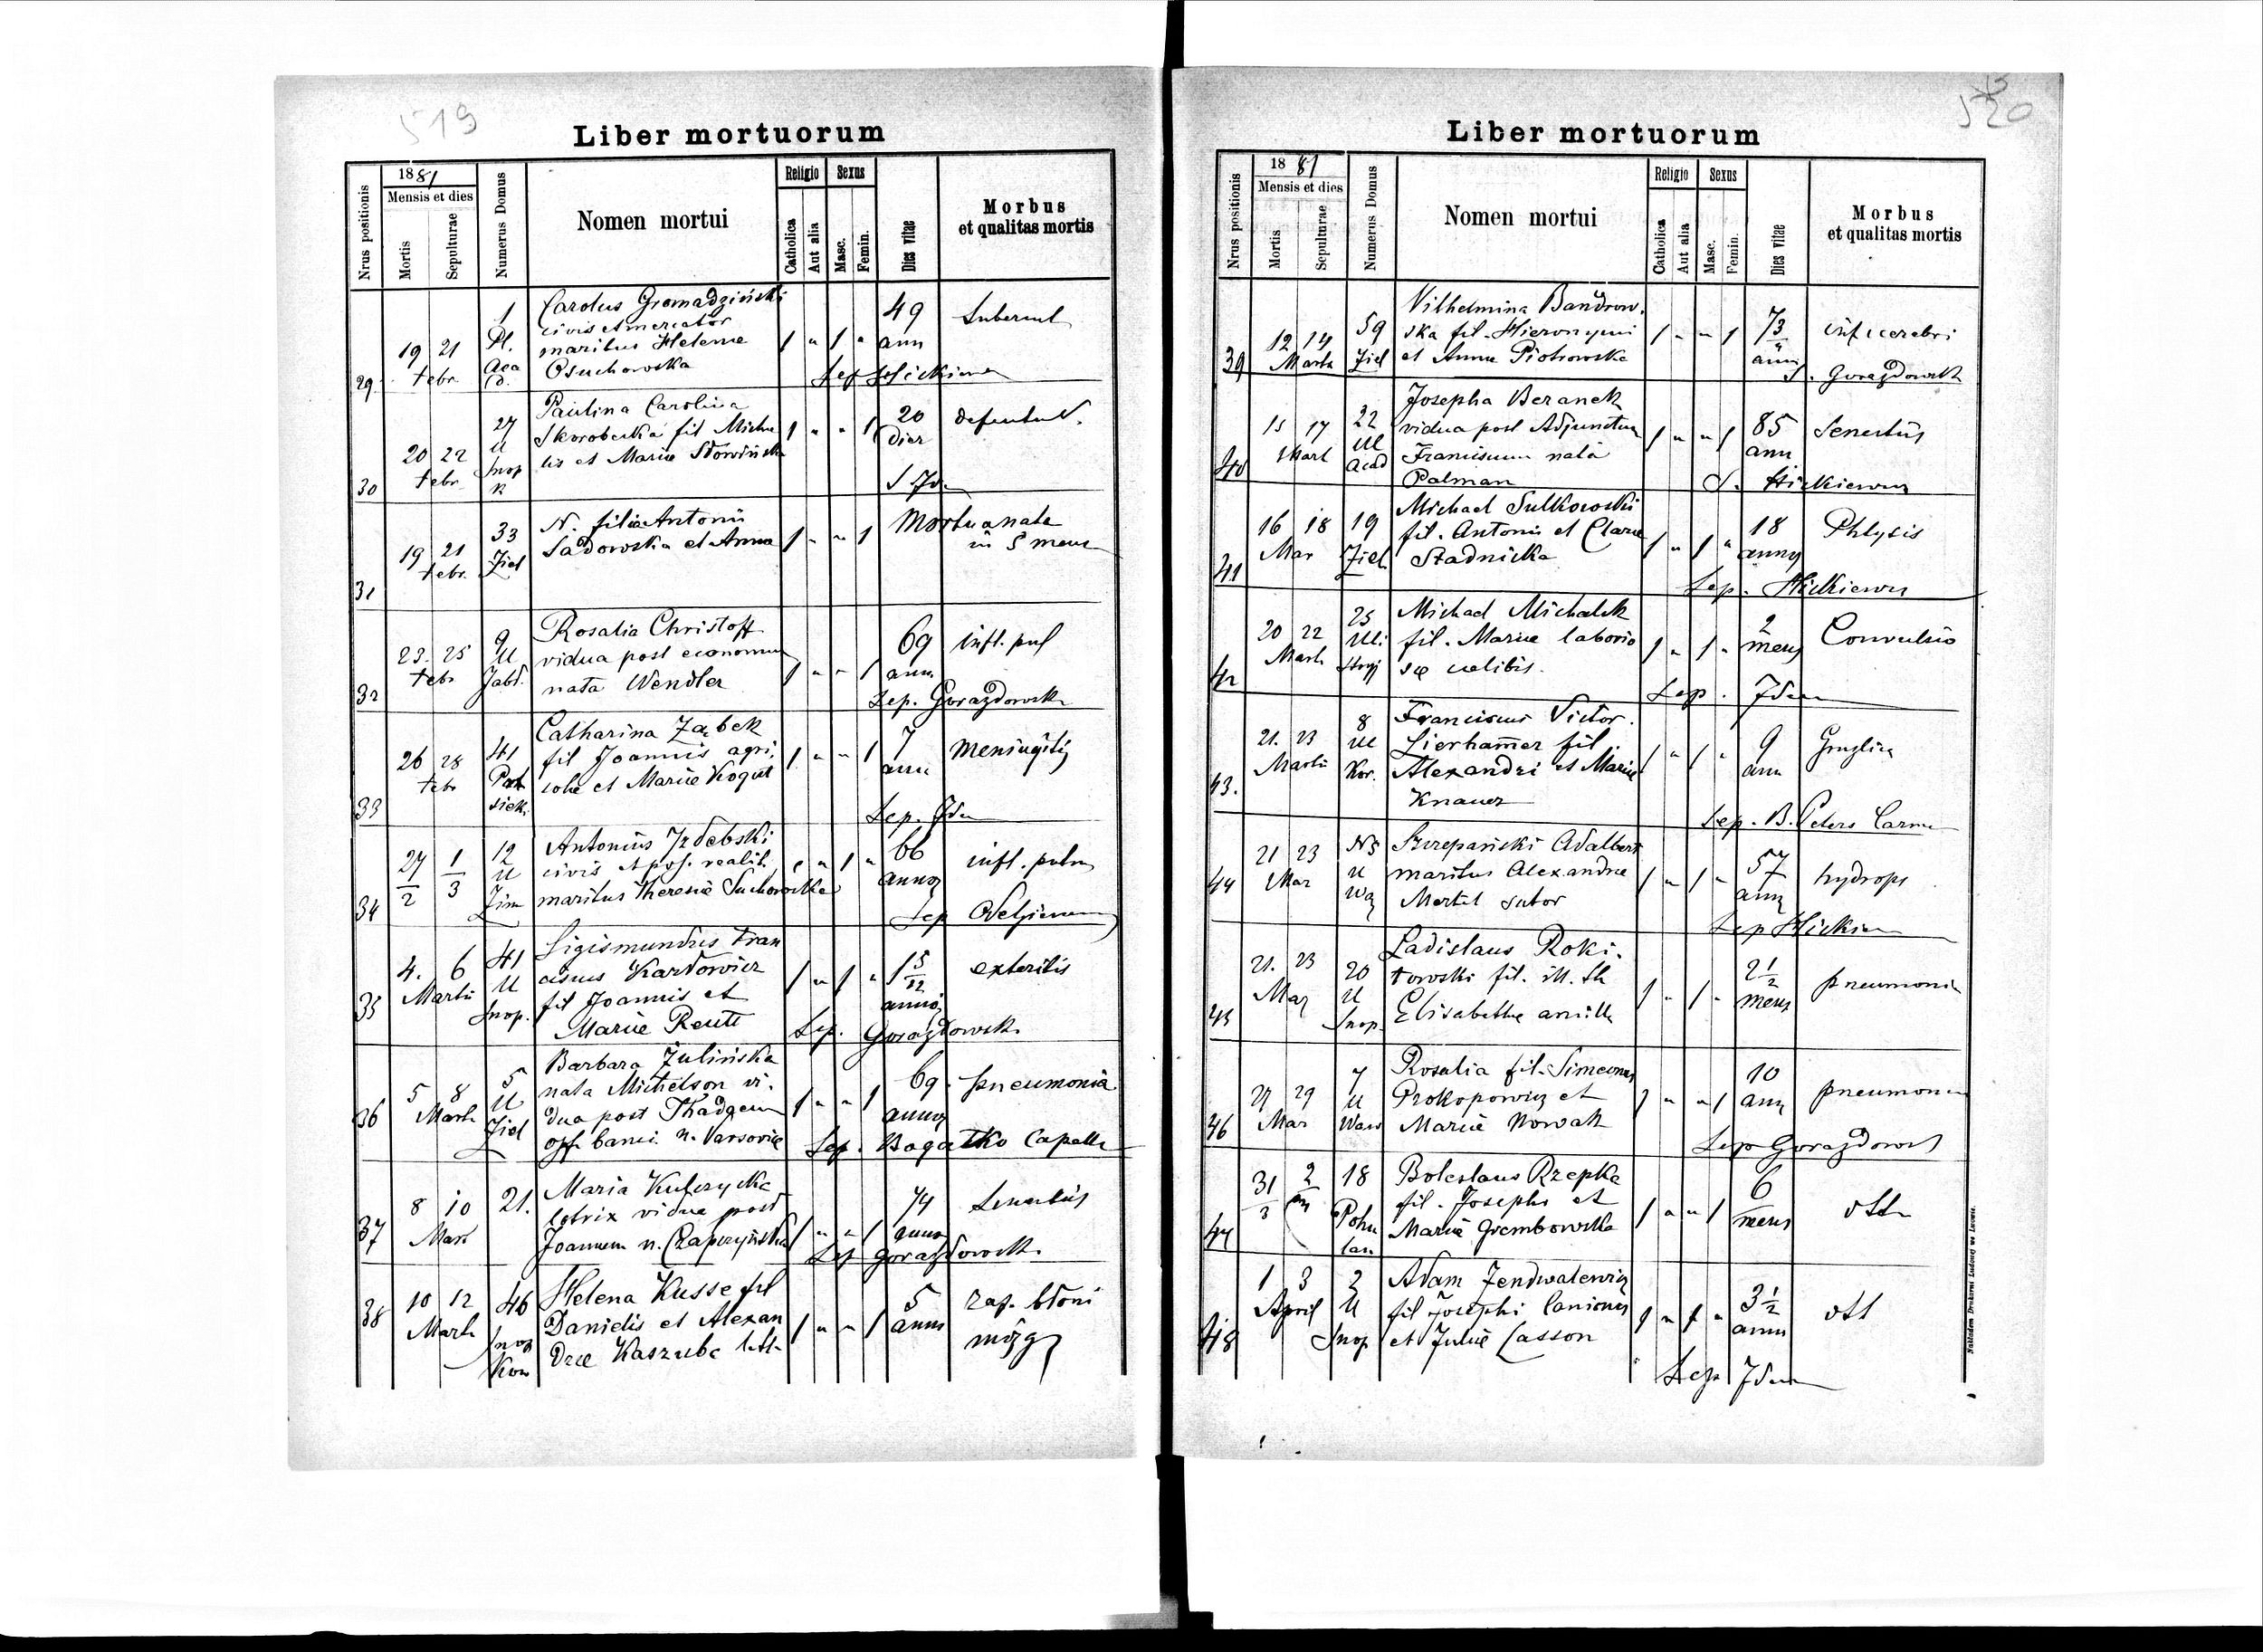 519
Liber mortuorum
Nrus positionis
1881
Mensis et dies
Mortis
Sepulturae
Numerus Domus
Nomen mortui
Religio
Catholica
Aut alia
Sexus
Masc.
Femin.
Dies vitae
Morbus
et qualitas mortis
29 19 21 Febr. 1 Pl. Aca
Carolus Gromadziński
civis et mercator
maritus Helenae
Osuchowska
1 " 1 "
49 ann
30 20 22 Febr. 27 U Snop
Paulina Carolina
Skorobecka fil Micha
lis et Mariae Słowińsk
1 " " 1
20 dier
31 19 21 Febr. 33 Ziel
N. filia Antonii
Sadowska et Anna
1 " " 1
Mortua nata
in 5 mens
32 23. 25 Febr 9 U Jabł.
Rosalia Christoff
vidua post economum
nata Wendler
1 " " 1
69 ann
infl. pul
Sep. Gorazdowsk
33 26 28 Febr 41
Catharina Ząbek
fil Joannis agri
colae et Mariae Kogut
1 " " 1
7 ann
Meningitis
Sep. Idem
34 27/2 1/3 12 U Zim
Antonius Izdebski
civis et pos. realit.
maritus Theresiae Suchorowska
1 " 1 "
66 annor
infl. pulm
Sep
35 4. 6 Martii 41 U Snop.
Sigismundus Fran
ciscus Karłowicz
fil Joannis et
Mariae Reutt
1 " 1 "
1 5/12 annor
Sep. Gorazdowsk
36 5 8 Marti 5 U Ziel
Barbara Żulińska
nata Michelson vi.
dua post Thadaeum
off. banci n. Varsoviae
1 " " 1
69 annor
pneumonia
Sep. Bogatko Capell
37 8 10 Mart 21.
Maria Kulczycka
lotrix vidua post
Joannem n. Czapczyńska
1 " " 1
74 annor
Senectus
Sep Gorazdowsk.
38 10 12 Marti 46 Snop
Helena Kusse fil
Danielis et Alexan
drae Kaszube
1 " " 1
5 ann
zap. błoni
mózg
520
Liber mortuorum
Nrus positionis
1881
Mensis et dies
Mortis
Sepulturae
Numerus Domus
Nomen mortui
Religio
Catholica
Aut alia
Sexus
Masc.
Femin.
Dies vitae
Morbus
et qualitas mortis
39 12 14 Marti 59 Ziel
Vilhelmina Bandrow.
ska fil. Hieronymi
et Annae Piotrowska
1 " " 1
73 ann
inf cerebri
S. Gorazdowsk
40 15 17 Mart 22 Ul Acad
Josepha Beranek
vidua post Adjunctum
Franciscum nata
Palman
1 " " 1
85 ann
Senectus
S. Hickiewicz
41 16 18 Mar 19 Ziel.
Michael Sulkowski
fil. Antonii et Clarae
Stadnicka
1 " 1 "
18 annor
Phtysis
Sep. Hickiewicz
42 20 22 Marti 25 Ul. Stryj
Michael Michalek
fil. Mariae laborio
sae caelibis.
1 " 1 "
2 mens
Convulsio
Sep. Idem
43. 21. 23 Martii 8 Ul Kor.
Franciscus Victor.
Lierham̄er fil.
Alexandri et Mariae
Knauer
1 " 1 "
9 ann
Gruzlica
Sep. B. Peters Carm
44 21 23 Mar N5 u
Szczepański Adalbert
maritus Alexandrae
Mertel sutor
1 " 1 "
57 ann
hydrops
Sep Hickiew
45 21. 23 Mar 20 U Snop
Ladislaus Roki.
towski fil. ill. th
Elisabethae ancillae
1 " 1 "
2 1/2 mens
pneumonia
46 27 29 Mar 7 U
Rosalia fil. Simeonis
Prokopowicz et
Mariae Nowak
1 " " 1
10 ann
pneumonia
Sep Gorazdowsk
47 31/3 2 18
Boleslaus Rzepka
fil. Josephi et
Mariae Grembowska
1 " " 1
6 mens
48 1 3 April 2 U Snop
Adam Zendwalewicz
fil Josephi lanionis
et Juliae Casson
1 " 1 "
3 1/2 annor
Sep Idem
Nakładem Drukarni Ludowej we Lwowie.